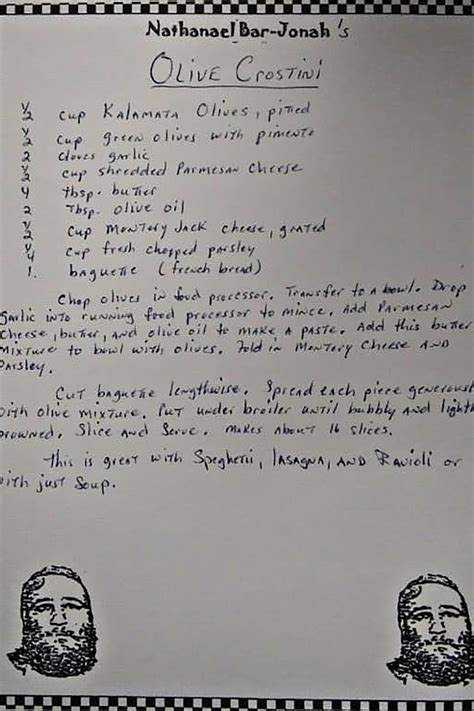 Nathanael Bar-Jonah's
Olive Crostini
1/2 cup Kalamata Olives, pitted
1/2 cup green olives with pimento
2 cloves garlic
1/2 cup shredded Parmesan Cheese
4 tbsp. butter
2 Tbsp. olive oil
1/2 cup Montery Jack cheese, grated
1/4 cup fresh chopped parsley
1. baguette (french bread)
Chop olives in food processor. Transfer to a bowl. Drop
garlic into running food processor to mince. Add Parmesan
Cheese, butter, and olive oil to make a paste. Add this butter
Mixture to bowl with olives. Fold in Montery Cheese and
Parsley.
Cut baguette lengthwise. Spread each piece generous
with olive mixture. Put under broiler until bubbly and light
browned. Slice and Serve. Makes about 16 slices.
This is great with Speghetii, lasagna, and Ravioli or
with just Soup.